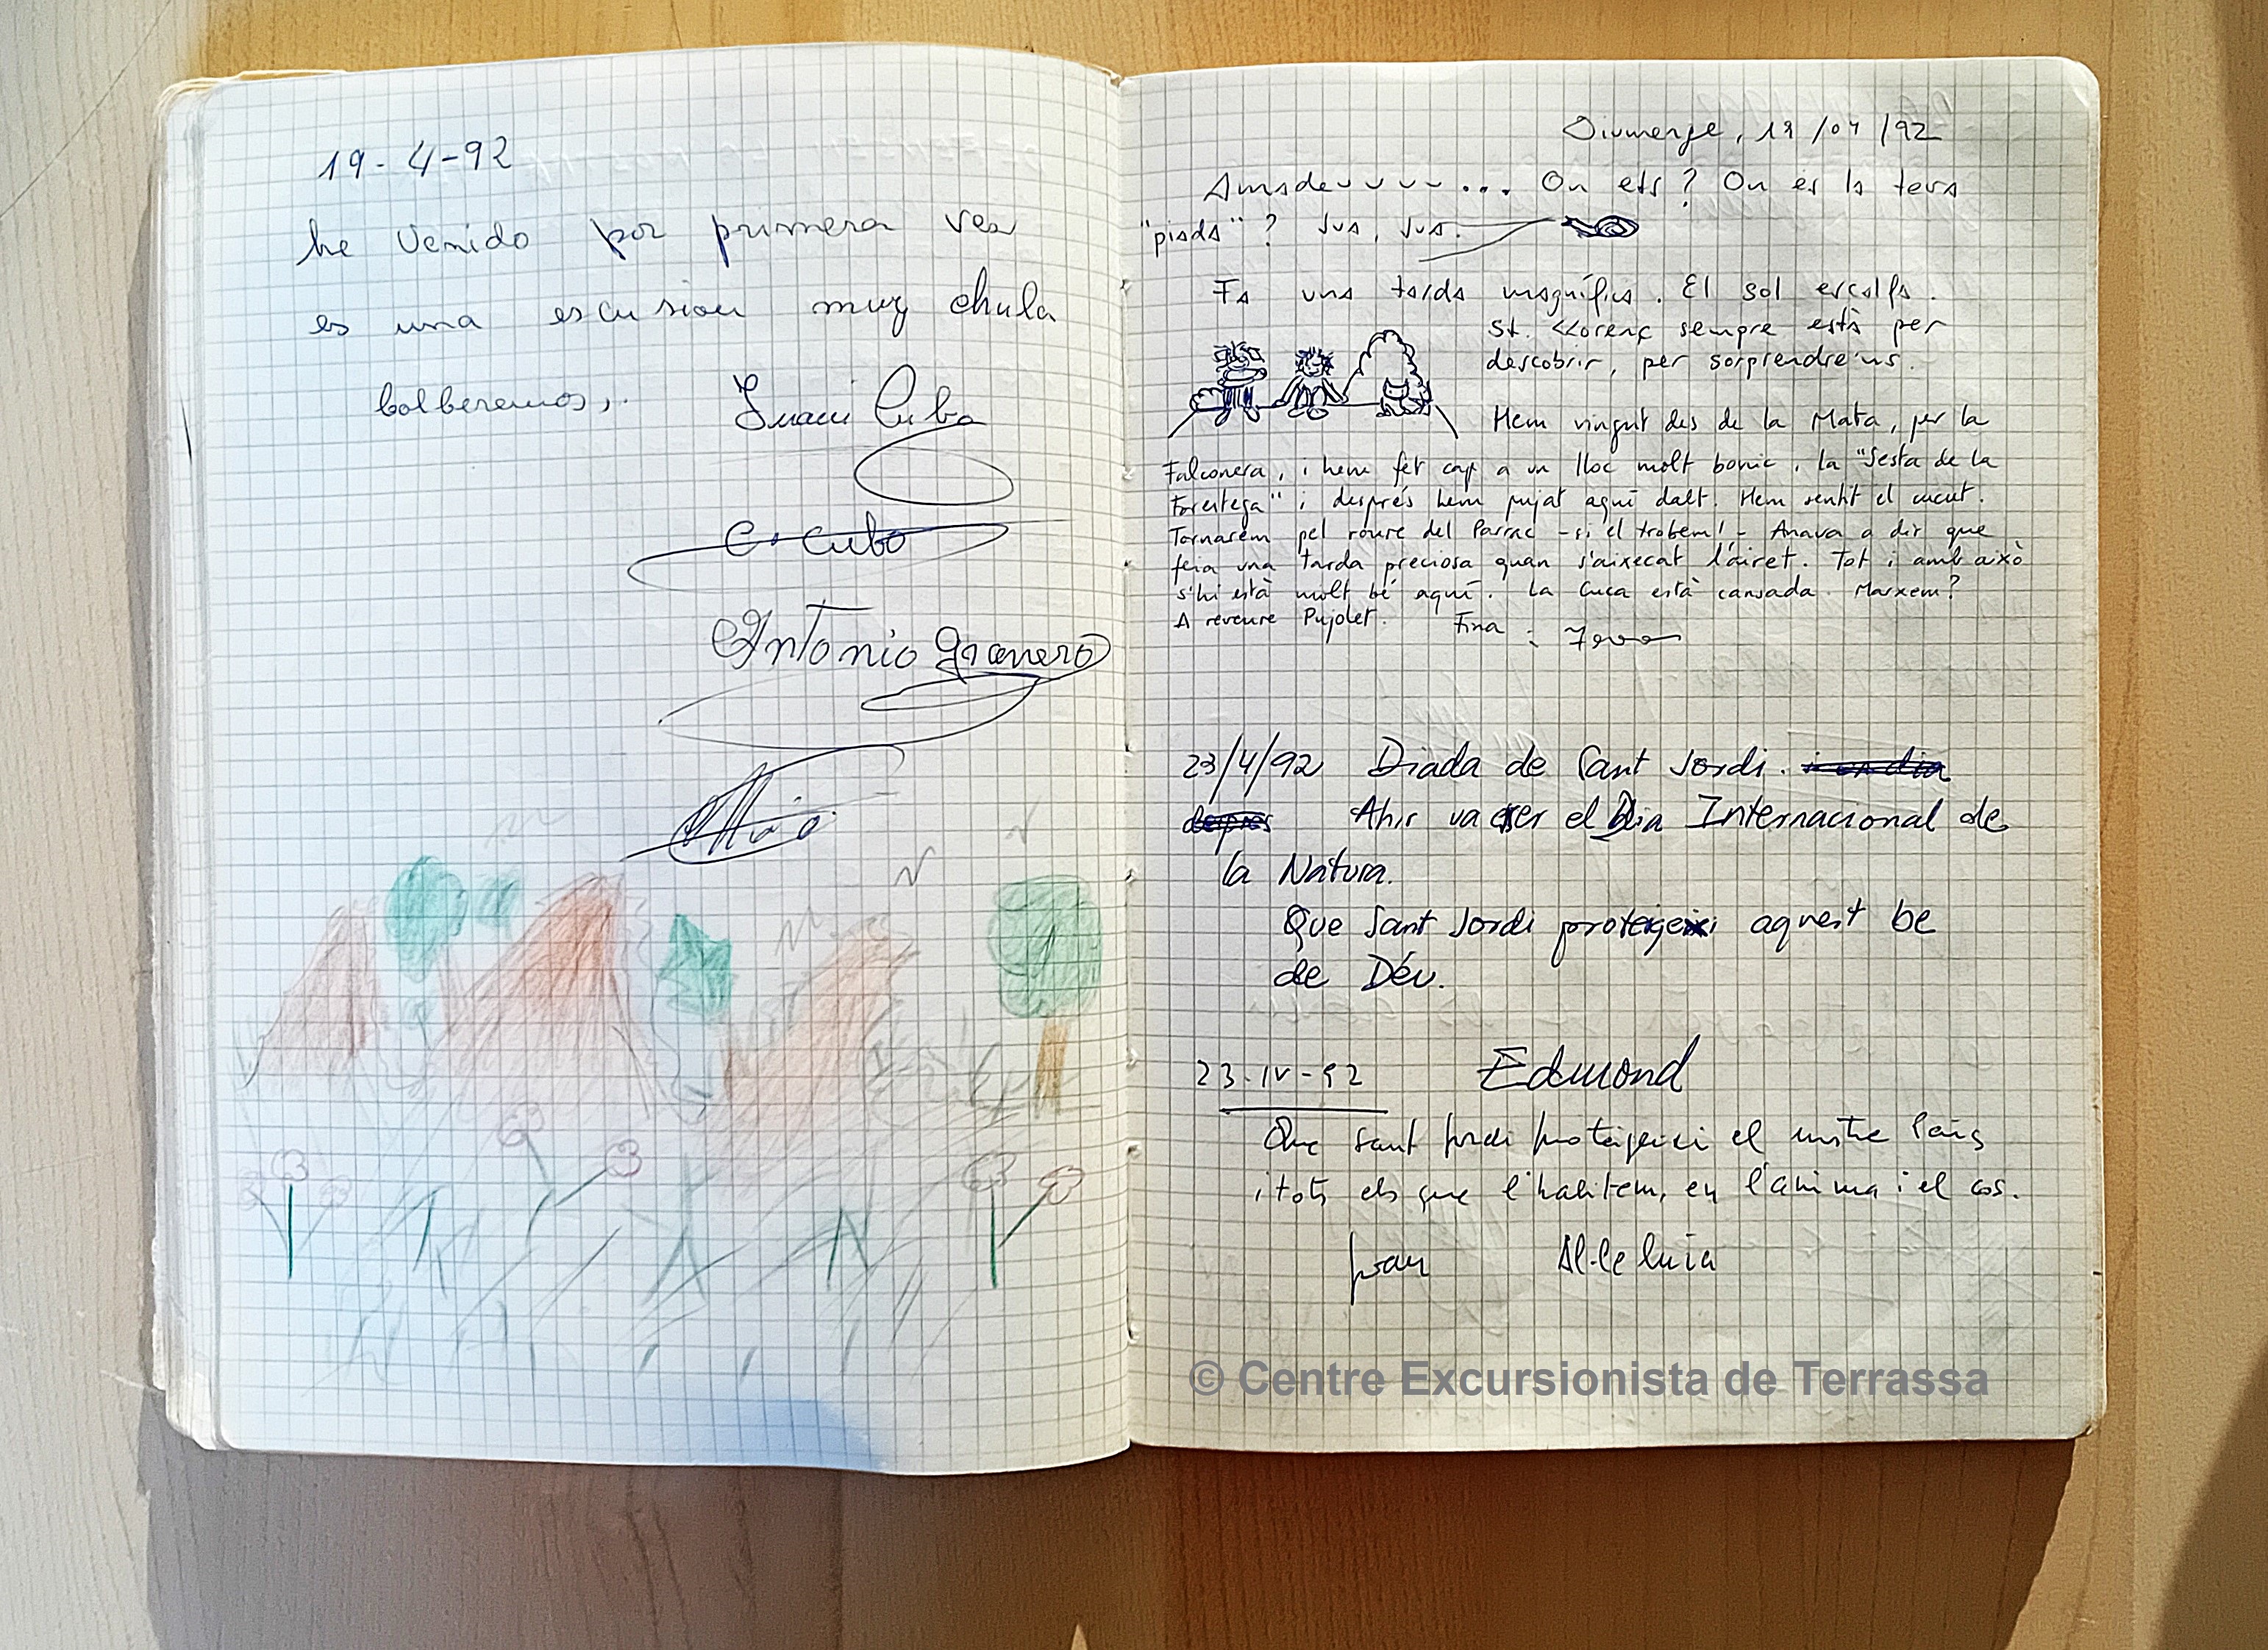 19-4-92
he venido por primera vez
es una escursion muy chula
bolberemos,.
Juani Cubo
C. Cubo
Antonio Granero
Diumenge, 19/04/92
Amadeuuuu... On ets? On és la teva
"piada"? Jua, Jua.
Fa una tarda magnífica. El sol escalfa.
St. Llorenç sempre està per
descobrir, per sorprendre'ns.
Hem vingut des de la Mata, per la
Falconera, i hem fet cap a un lloc molt bonic, la "Sesta de la
" i després hem pujat aquí dalt. Hem sentit el cucut.
Tornarem pel roure del Parrac -si el trobem!- Anava a dir que
feia una tarda preciosa quan s'aixecat l'airet. Tot i amb això
s'hi està molt bé aquí. La Cuca està cansada. Marxem?
A reveure Pujolet. Fina i
23/4/92 Diada de Sant Jordi.
Ahir va ser el Dia Internacional de
la Natura.
Que Sant Jordi protegeixi aquest be
de Déu.
Edmond
23-IV-92
Que Sant Jordi protegeixi el nostre País
i tots els que l'habitem, en l'ànima i el cos.
Joan Al·leluia
© Centre Excursionista de Terrassa